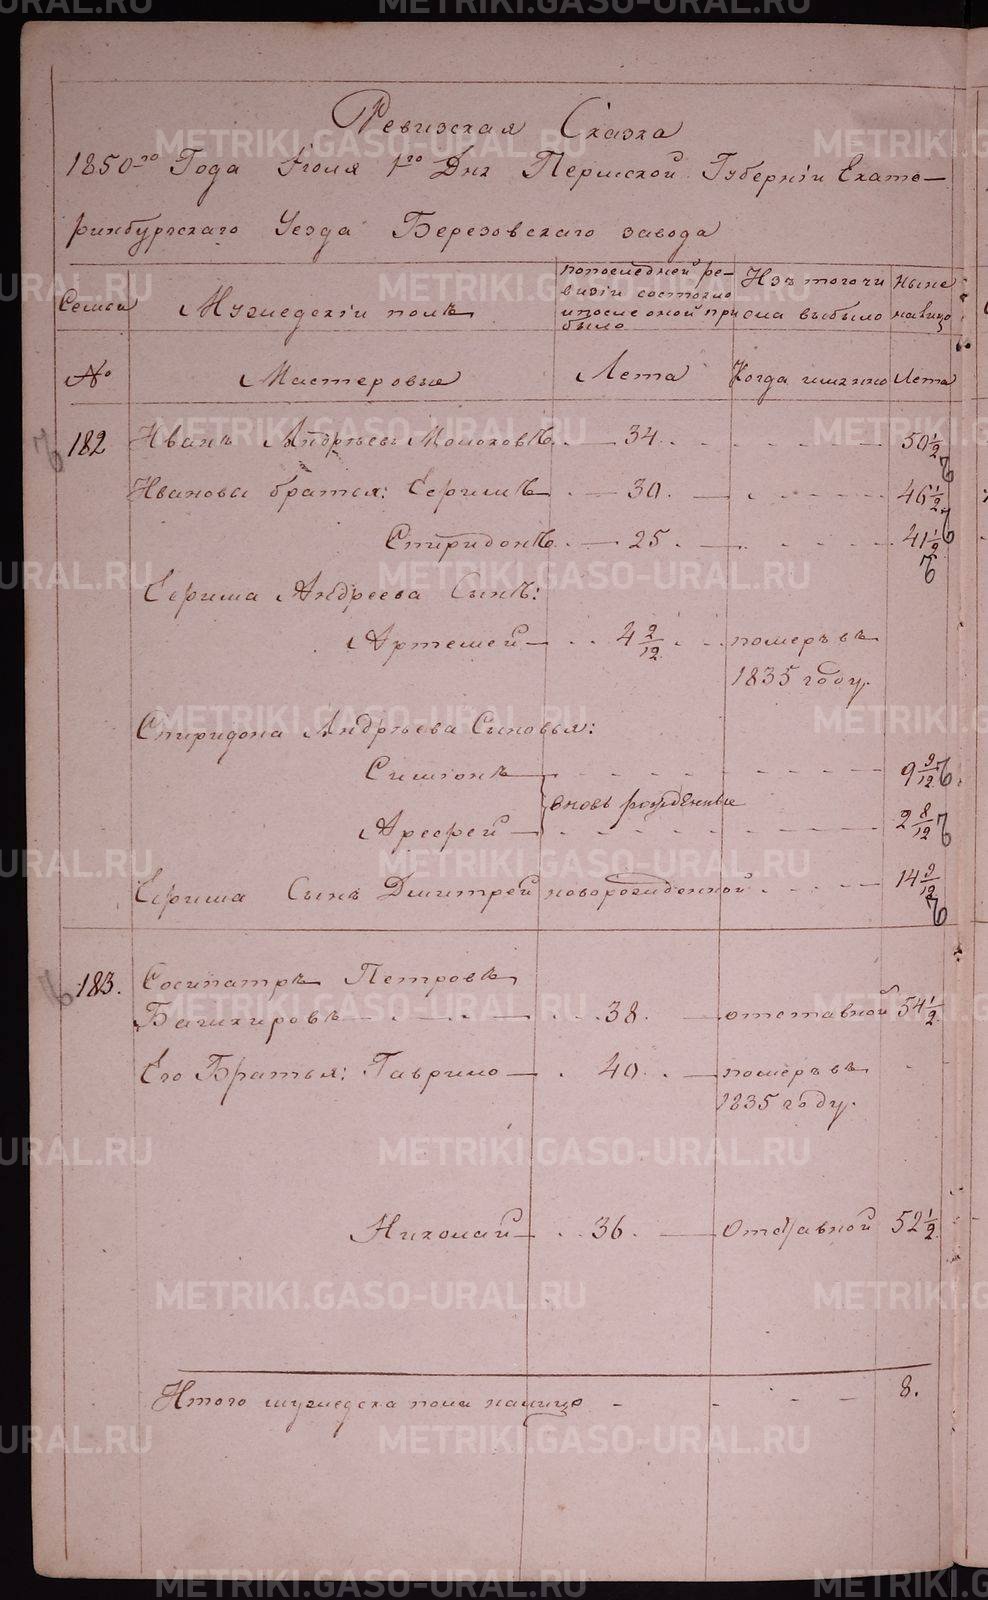 Ревизская Сказка
1850-го Года Іюля 1го Дня Пермской Губерніи Екате-
ринбургскаго Уезда Березовскаго завода
Семьи Мужедскіи полъ попоследней ре- Изъ того чи Ныне
визіи состояло
ипосле оной при сла выбыло налицо
было
№ Мастеровые Лета Когда имянно Лета
182 Иванъ Андрѣевъ Молоковъ 34 50 1/2
Ивановы братья: Ефримъ 30 46 1/2
Спиридонъ 25 41 1/2
Ефрима Андреева Сынъ:
Артемей 4 2/12 померъ въ
1835 году.
Спиридона Андрѣева Сыновья:
Симіонъ 9 9/12
вновь рожденные
Арефей 2 8/12
Ефрима Сынъ Дмитрей новорожденной 14 9/12
183. Сосипатръ Петровъ
Башкировъ 38 отставной 54 1/2
Его Братья: Гаврило 40 померъ въ
1835 году.
Николай 36 Отставной 52 1/2
Итого мужедска пола налицо 8.
METRIKI.GASO-URAL.RU